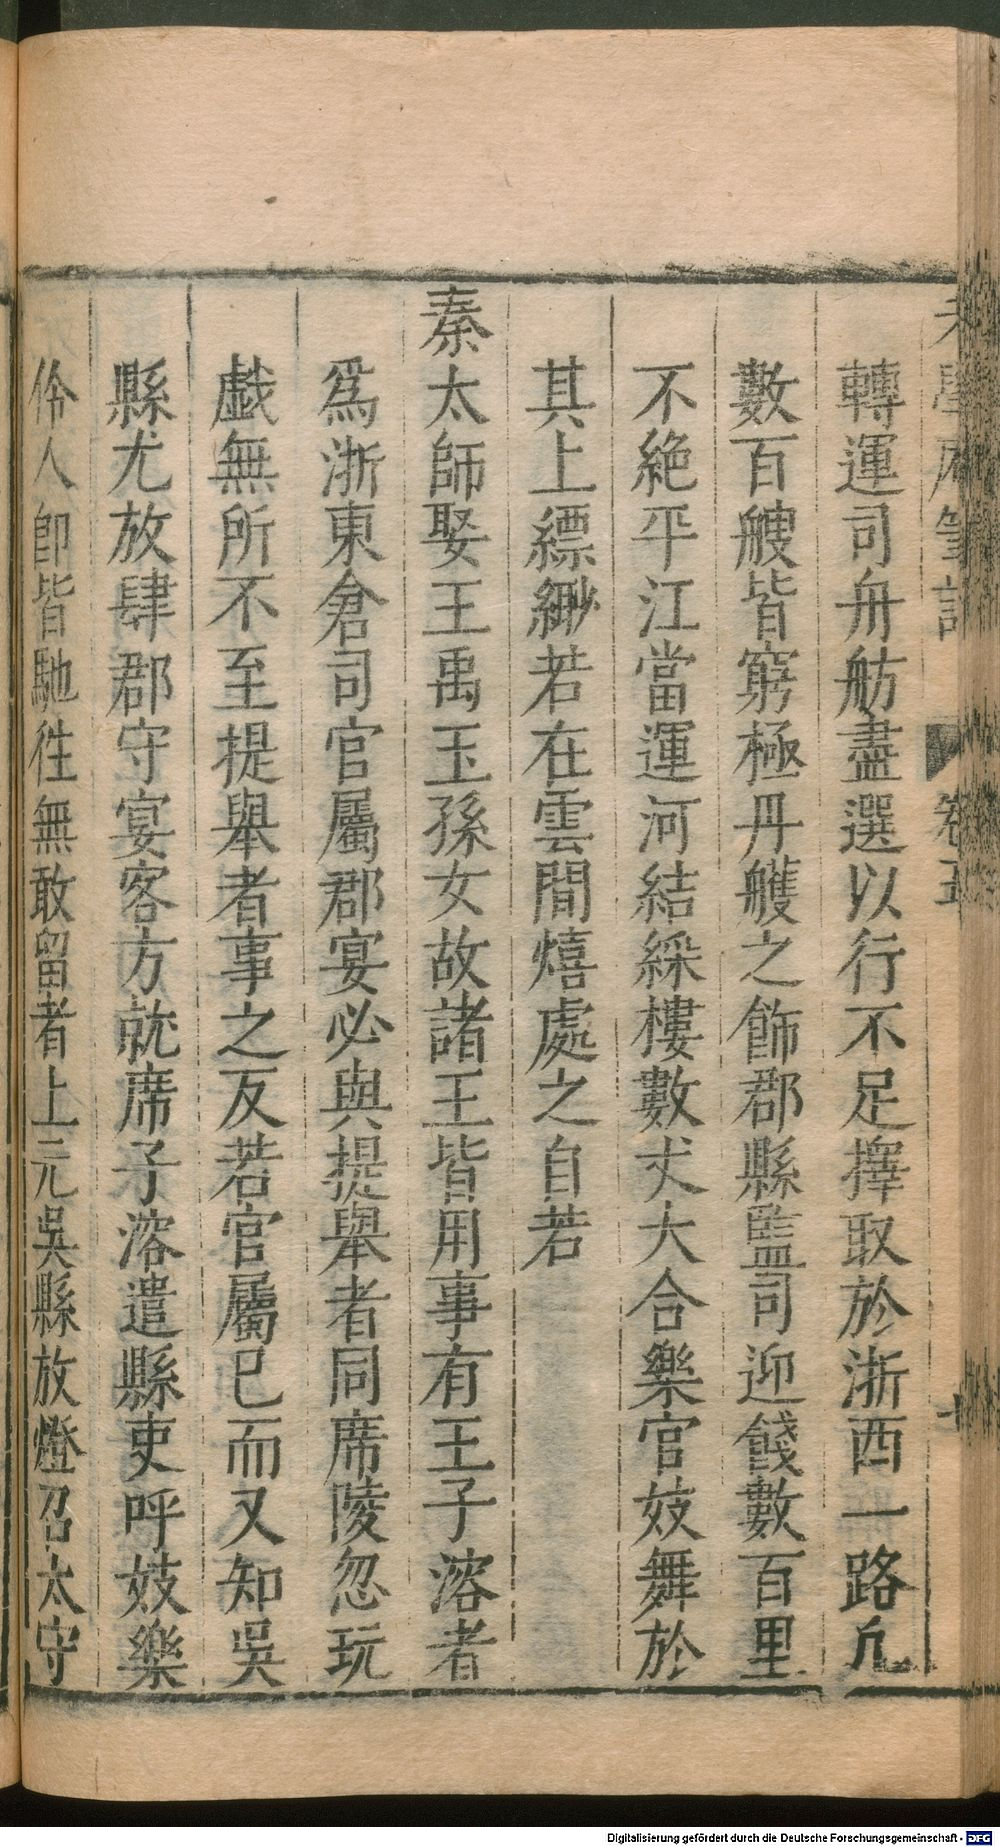 轉運司舟舫盡選以行不足擇取於浙西一路凢
數百艘皆窮極丹艧之飾郡縣監司迎餞數百里
不絶平江當運河結綵樓數丈大合樂官妓舞於
其上縹緲若在雲間熺處之自若
秦太師娶王禹玉孫女故諸王皆用事有王子溶者
爲浙東倉司官屬郡宴必與提舉者同席陵忽玩
戱無所不至提舉者事之反若官屬已而又知吳
縣尤放肆郡守宴客方就席子溶遣縣吏呼妓樂
伶人卽皆馳徃無敢留者上元吳縣放燈召太守
Digitalisierung gefördert durch die Deutsche Forschungsgemeinschaft - DFG